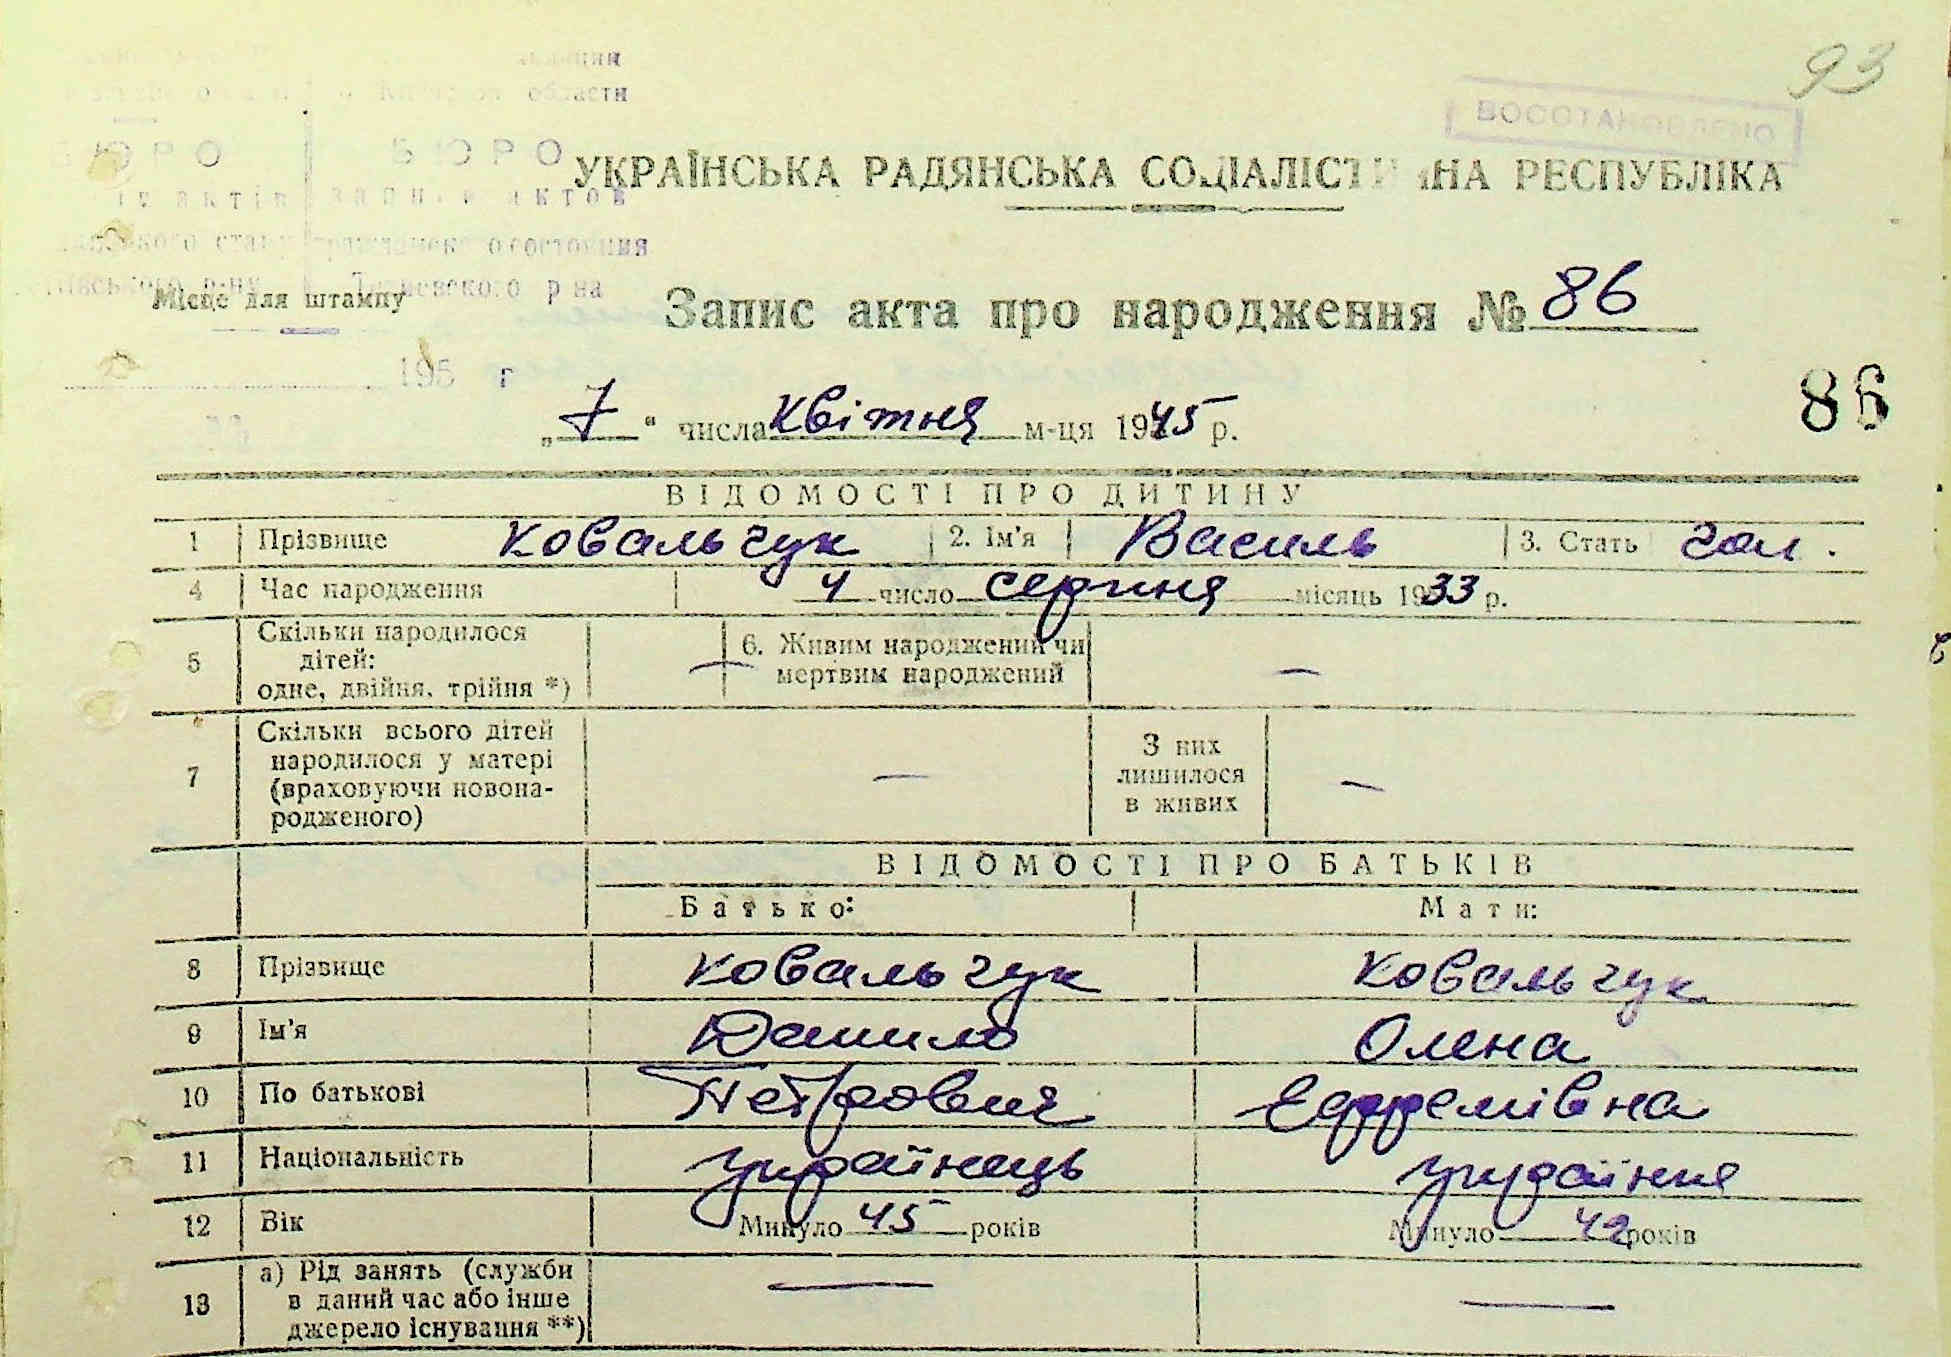 93
области
ВОССТАНОВЛЕНО
БЮРО БЮРО
УКРАЇНСЬКА РАДЯНСЬКА СОЦІАЛІСТИЧНА РЕСПУБЛІКА
актів записи актов
стану состояния
р-ну р-на
Місце для штампу
Запис акта про народження № 86
195 г
86
„7“ числа квітня м-ця 1945 р.
ВІДОМОСТІ ПРО ДИТИНУ
1 Прізвище Ковальчук 2. Ім'я Василь 3. Стать чол.
4 Час народження 4 число серпня місяць 1933 р.
5 Скільки народилося дітей: одне, двійня, трійня *) — 6. Живим народжений чи мертвим народжений —
7 Скільки всього дітей народилося у матері (враховуючи новонародженого) — З них лишилося в живих —
ВІДОМОСТІ ПРО БАТЬКІВ
Батько: Мати:
8 Прізвище Ковальчук Ковальчук
9 Ім'я Данило Олена
10 По батькові Петрович Ефремівна
11 Національність українець українка
12 Вік Минуло 45 років Минуло 42 років
13 а) Рід занять (служби в даний час або інше джерело існування **) — —